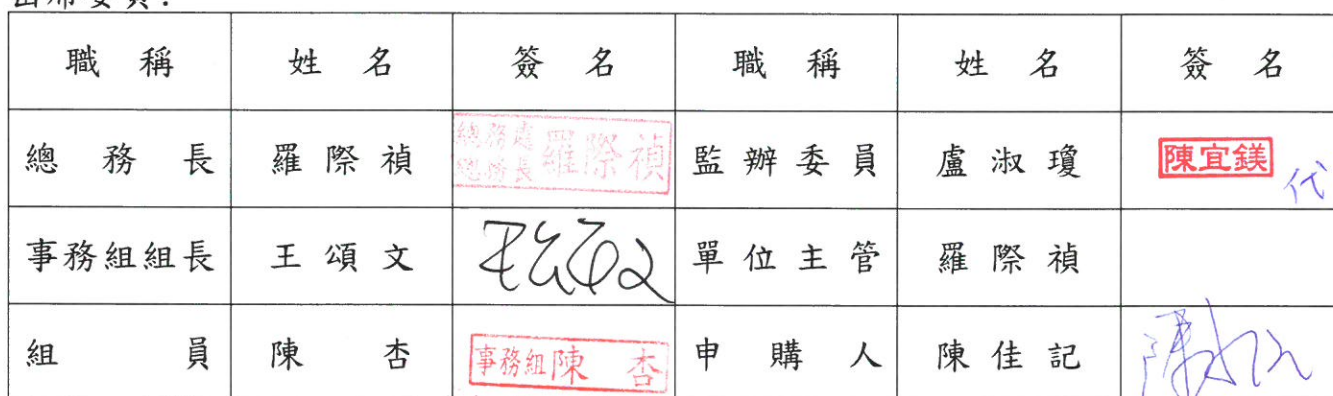 出席委員：
職稱 姓名 簽名 職稱 姓名 簽名
總務長 羅際禎 總務處總務長羅際禎 監辦委員 盧淑瓊 陳宜鎂 代
事務組組長 王頌文 王頌文 單位主管 羅際禎
組員 陳杏 事務組陳杏 申購人 陳佳記